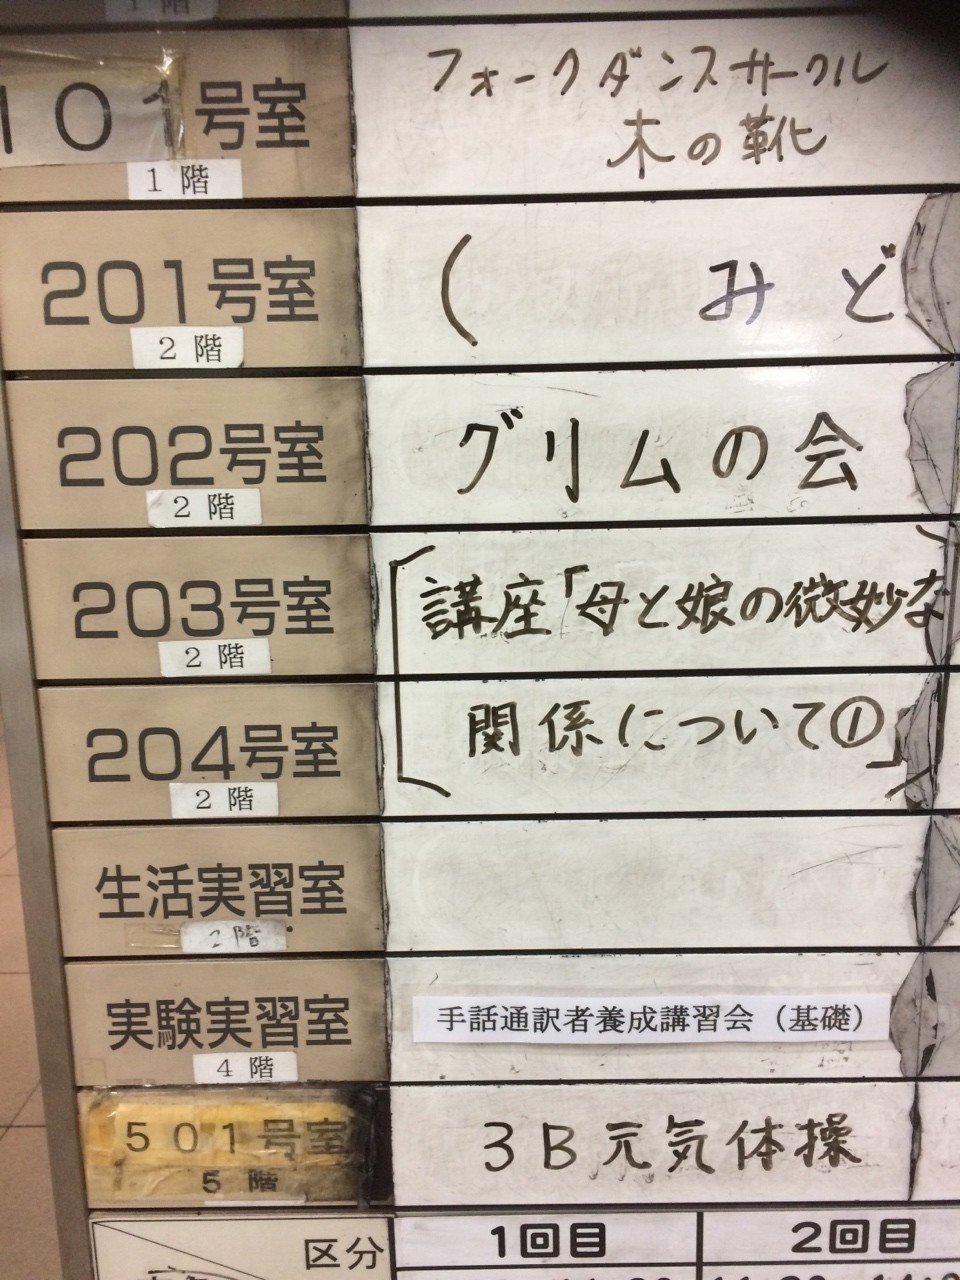 1階
101号室
1 階
フォークダンスサークル
木の靴
201号室
2 階
( みど
202号室
2 階
グリムの会
203号室
2 階
講座「母と娘の微妙な
204号室
2 階
関係について①」
生活実習室
2階
実験実習室
4 階
手話通訳者養成講習会（基礎）
501号室
5 階
3B元気体操
区分
1回目
2回目